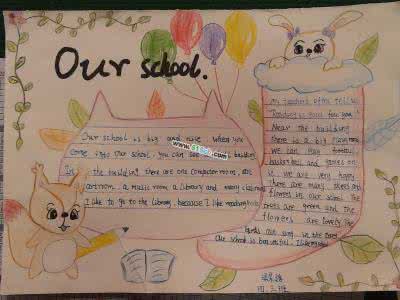 Our school.
Our school is big and nice when you
come into Our school, you can see building
In the building there are one computer room, an
artroom, a music room a library and many classrooms
I like to go to the library, because I like reading books
teachers often tell us
Near the building
there is a big playground
we can
basketball and games on
it. we are very happy
There are many trees and
flowers in our school. The
trees are green and the
flowers are lovely. The
birds are sing in the trees.
Our school is beautiful. I like
四三班